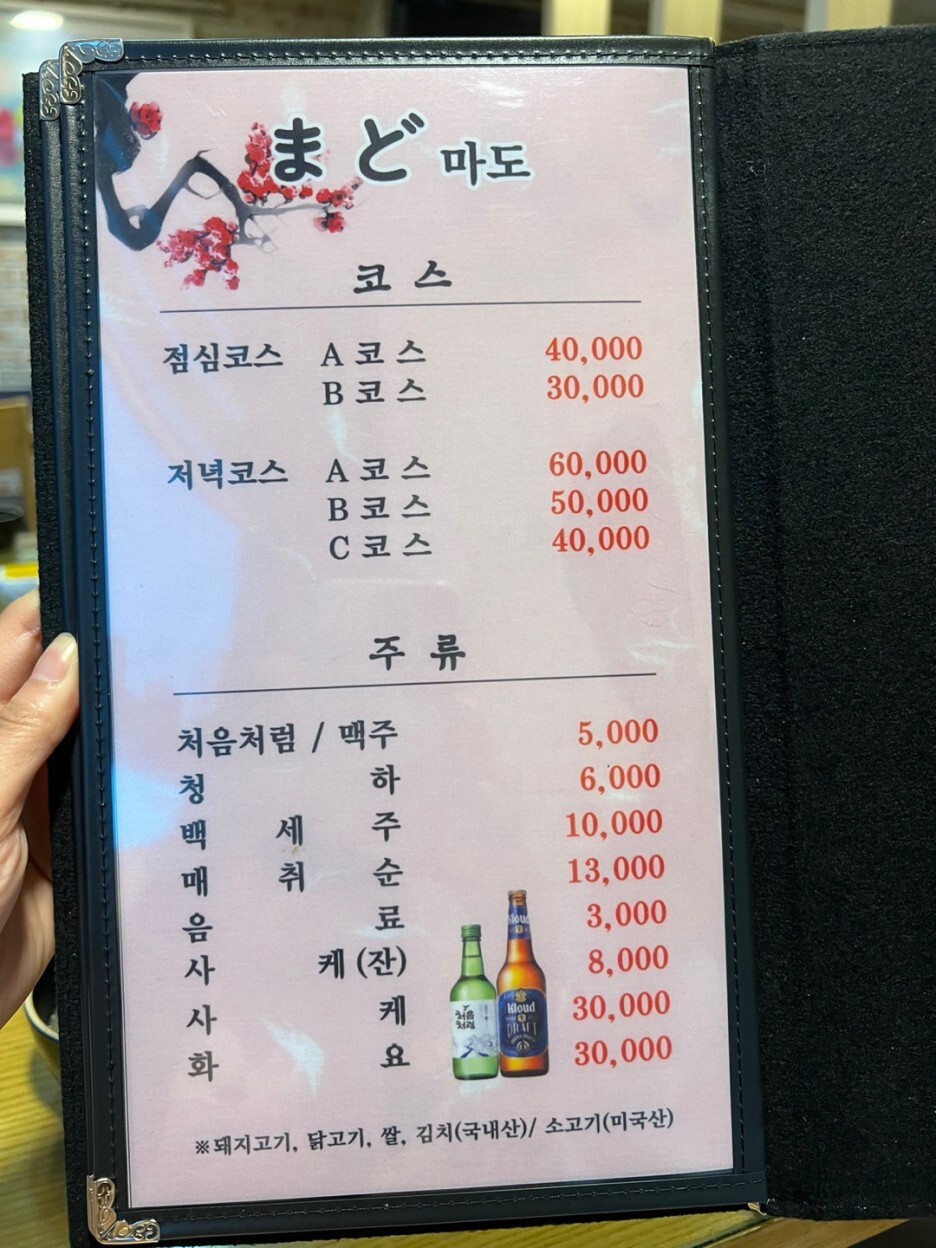 まど 마도
코스
점심코스 A 코스 40,000
B 코스 30,000
저녁코스 A 코스 60,000
B 코스 50,000
C 코스 40,000
주류
처음처럼 / 맥주 5,000
청하 6,000
백세주 10,000
매취순 13,000
음료 3,000
사케 (잔) 8,000
사케 30,000
화요 30,000
Kloud
처음
처럼
Kloud
DRAFT
※돼지고기, 닭고기, 쌀, 김치(국내산)/ 소고기(미국산)